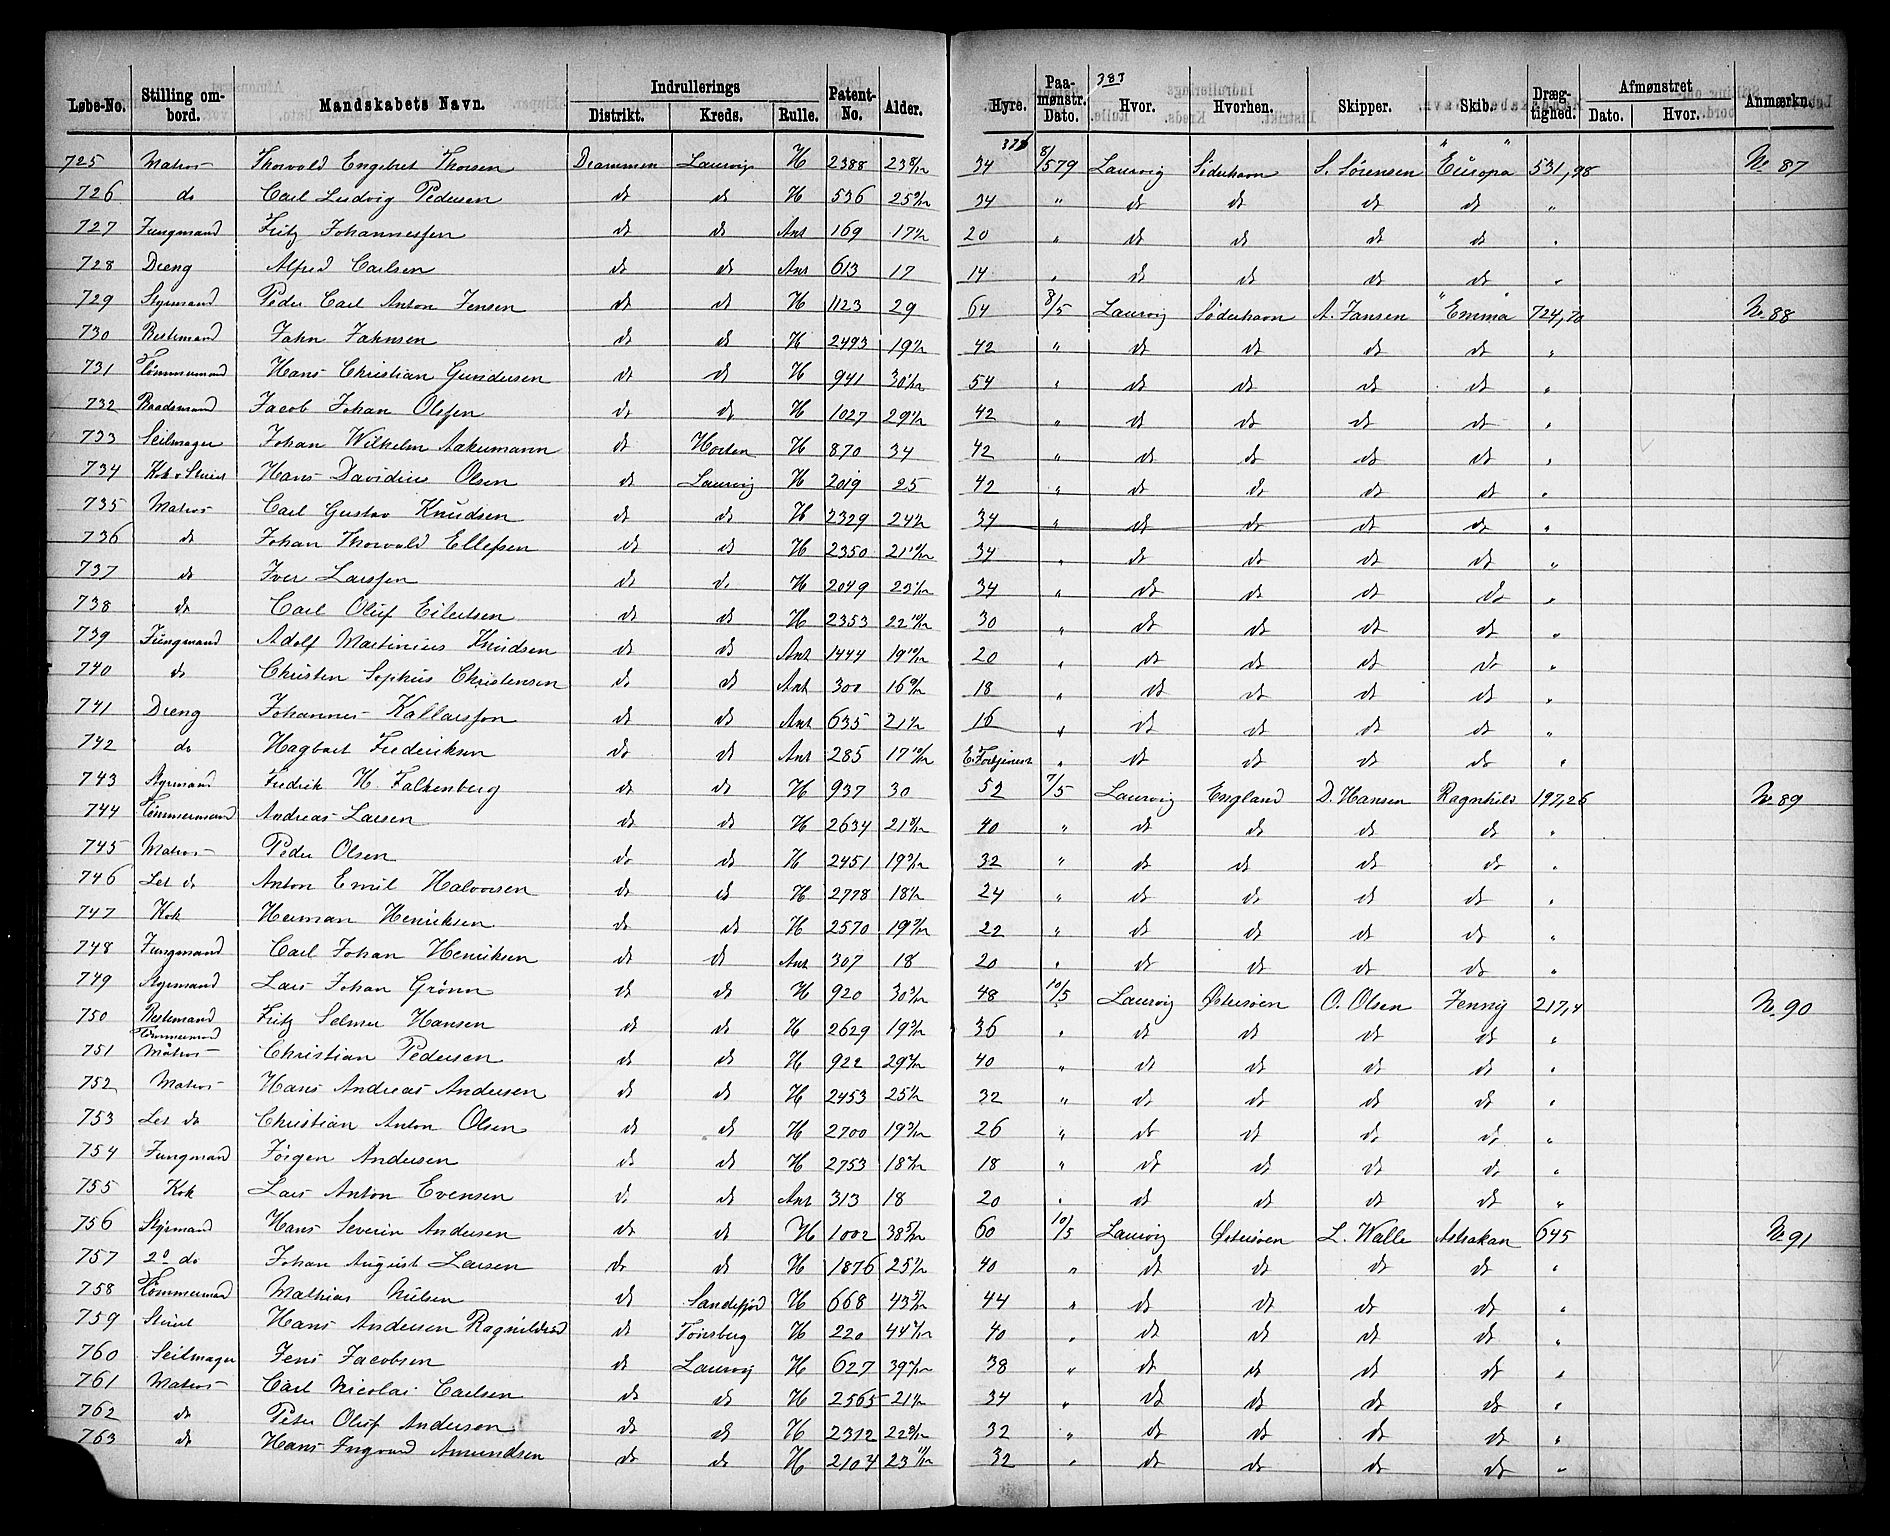 383
Løbe-No. | Stilling ombord. | Mandskabets Navn. | Indrullerings Distrikt. | Kreds. | Rulle. | Patent-No. | Alder. | Hyre. | Paamønstr. Dato. | Hvor. | Hvorhen. | Skipper. | Skib. | Drægtighed. | Afmønstret Dato. | Hvor. | Anmærkn.
725 | Matros | Thorvald Engebret Thorsen | Drammen | Laurvig | H | 2388 | 23 8/12 | 34 | 8/5 79 | Laurvig | Söderhavn | S. Sörensen | "Europa" | 531,98 | No 87
726 | do | Carl Ludvig Pedersen | do | do | H | 536 | 25 | 34 | " | do | do | do | do | "
727 | Jungmand | Fritz Johannessen | do | do | Ant | 169 | 17 | 20 | " | do | do | do | do | "
728 | Dreng | Alfred Carlsen | do | do | Ant | 613 | 17 | 14 | " | do | do | do | do | "
729 | Styrmand | Peder Carl Anton Jensen | do | do | H | 1123 | 29 | 64 | 8/5 | Laurvig | Söderhavn | A. Jansen | "Emma" | 724,70 | No 88
730 | Bestemand | John Johnsen | do | do | H | 2493 | 19 | 42 | " | do | do | do | do | "
731 | Tömmermand | Hans Christian Gundersen | do | do | H | 941 | 30 | 54 | " | do | do | do | do | "
732 | Baadsmand | Jacob Johan Olsen | do | do | H | 1027 | 29 | 42 | " | do | do | do | do | "
733 | Seilmager | Johan Wilhelm Aakermann | do | Horten | H | 870 | 34 | 42 | " | do | do | do | do | "
734 | Kok o Stuert | Hans Davidius Olsen | do | Laurvig | H | 2019 | 25 | 42 | " | do | do | do | do | "
735 | Matros | Carl Gustav Knudsen | do | do | H | 2329 | 24 | 34 | " | do | do | do | do | "
736 | do | Johan Thorvald Ellefsen | do | do | H | 2350 | 21 | 34 | " | do | do | do | do | "
737 | do | Iver Larssen | do | do | H | 2049 | 34 | " | do | do | do | do | "
738 | do | Carl Oluf Eilertsen | do | do | H | 2353 | 22 | 30 | " | do | do | do | do | "
739 | Jungmand | Adolf Martinius Knudsen | do | do | Ant | 1444 | 19 | 20 | " | do | do | do | do | "
740 | do | Christen Sophus Christensen | do | do | Ant | 300 | 16 | 18 | " | do | do | do | do | "
741 | Dreng | Johannes Kallarsson | do | do | Ant | 635 | 21 | 16 | " | do | do | do | do | "
742 | do | Hagbart Frederiksen | do | do | Ant | 285 | 17 | E. Fortjeneste | " | do | do | do | do | "
743 | Styrmand | Fredrik H. Falkenberg | do | do | H | 937 | 30 | 52 | 7/5 | Laurvig | England | D. Hansen | Ragnhild | 197,26 | No 89
744 | Tömmermand | Andreas Larsen | do | do | H | 2634 | 21 | 40 | " | do | do | do | do | "
745 | Matros | Peder Olsen | do | do | H | 2451 | 19 | 32 | " | do | do | do | do | "
746 | Let do | Anton Emil Halvorsen | do | do | H | 2778 | 18 | 24 | " | do | do | do | do | "
747 | Kok | Herman Henriksen | do | do | H | 2570 | 19 | 22 | " | do | do | do | do | "
748 | Jungmand | Carl Johan Henriksen | do | do | Ant | 307 | 18 | 20 | " | do | do | do | do | "
749 | Styrmand | Lars Johan Grönn | do | do | H | 920 | 30 | 48 | 10/5 | Laurvig | Östersöen | O. Olsen | Jenny | 217,4 | No 90
750 | Bestemand | Fritz Selmer Hansen | do | do | H | 2629 | 19 | 36 | " | do | do | do | do | "
751 | Tömmermand Matros | Christian Pedersen | do | do | H | 922 | 29 | 40 | " | do | do | do | do | "
752 | Matros | Hans Andreas Andersen | do | do | H | 2453 | 25 | 32 | " | do | do | do | do | "
753 | Let do | Christian Anton Olsen | do | do | H | 2700 | 19 | 26 | " | do | do | do | do | "
754 | Jungmand | Jörgen Andersen | do | do | H | 2753 | 18 | 18 | " | do | do | do | do | "
755 | Kok | Lars Anton Evensen | do | do | Ant | 313 | 18 | 20 | " | do | do | do | do | "
756 | Styrmand | Hans Severin Andersen | do | do | H | 1002 | 38 5/12 | 60 | 10/5 | Laurvig | Östersöen | L. Walle | Astrakan | 645 | No 91
757 | 2o do | Johan August Larsen | do | do | H | 1876 | 25 | 40 | " | do | do | do | do | "
758 | Tömmermand | Mathias Nilsen | do | Sandefjord | H | 668 | 43 | 44 | " | do | do | do | do | "
759 | Stuert | Hans Andersen Ragnildsröd | do | Tönsberg | H | 220 | 44 | 40 | " | do | do | do | do | "
760 | Seilmager | Jens Jacobsen | do | Laurvig | H | 627 | 39 | 38 | " | do | do | do | do | "
761 | Matros | Carl Nicolai Carlsen | do | do | H | 2565 | 21 | 34 | " | do | do | do | do | "
762 | do | Peter Oluf Andersen | do | do | H | 2312 | 22 | 32 | " | do | do | do | do | "
763 | do | Hans Ingvard Amundsen | do | do | H | 2104 | 23 | 32 | " | do | do | do | do | "